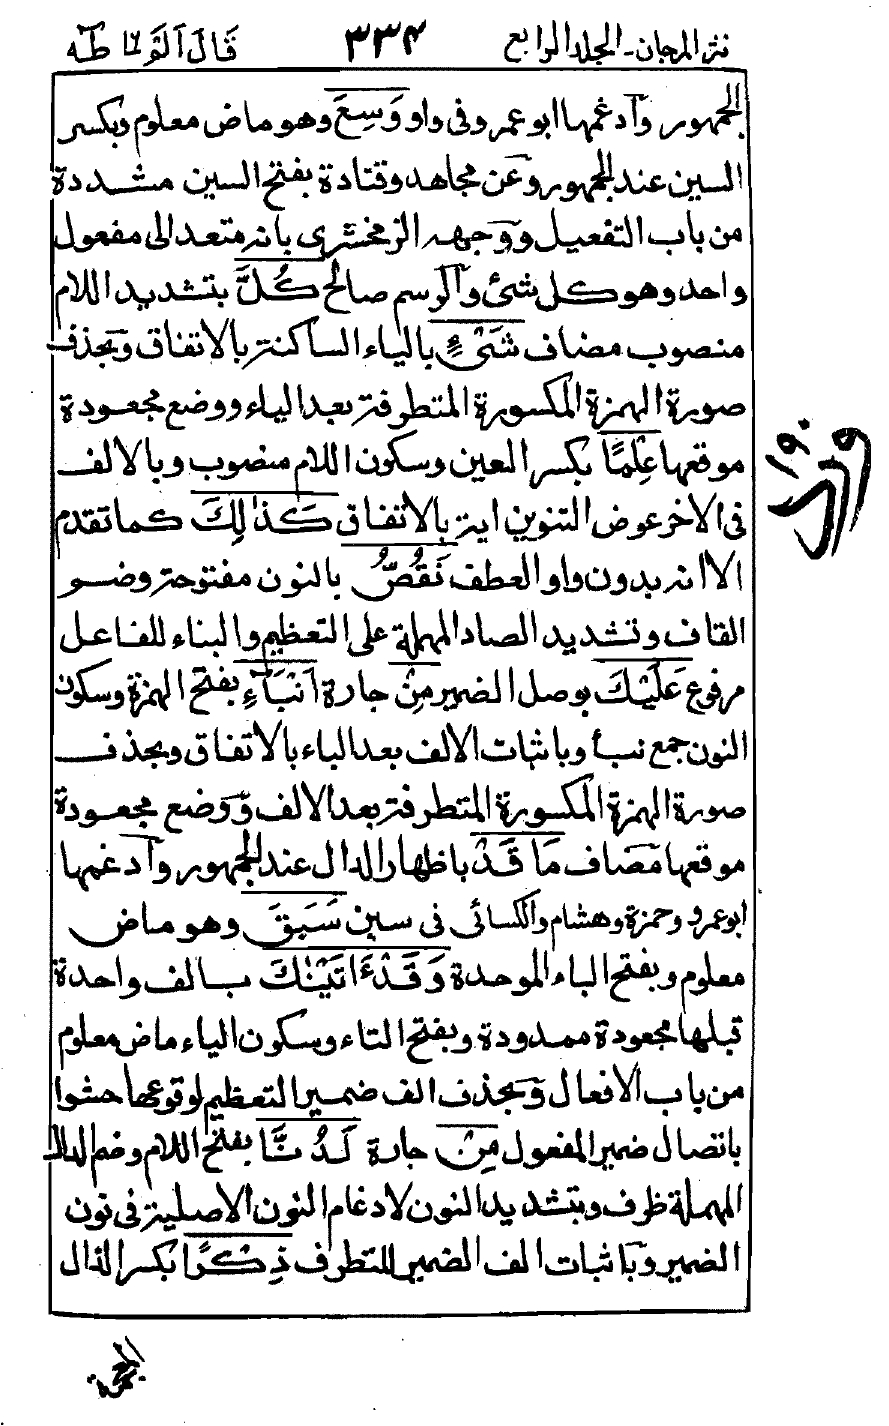 نثر المرجان - المجلد الرابع ٣٣٤ قَالَ اَلَمۡ ١٦ طٰهٰ
الجمهور وآدغمها ابو عمرو فى واو وَسِعَ وهو ماض معلوم وبكسر
السين عند الجمهور وعن مجاهد وقتادة بفتح السين مشددة
من باب التفعيل ووجهه الزمخشرى بانه متعد الى مفعول
واحد وهو كل شئ والرسم صالح كُلَّ بتشديد اللام
منصوب مضاف شَىْءٍ بالياء الساكنة بالاتفاق وبحذف
صورة الهمزة المكسورة المتطرفة بعد الياء ووضع مجعودة
موقعها عِلْمًا بكسر العين وسكون اللام منصوب وبالالف
فى الاخر عوض التنوين اية بالاتفاق كَذٰلِكَ كما تقدم
الا انه بدون واو العطف نَقُصُّ بالنون مفتوحة وضم
القاف وتشديد الصاد المهملة على التعظيم والبناء للفاعل
مرفوع عَلَيْكَ بوصل الضمير مِنْ جارة اَنْبَآءِ بفتح الهمزة وسكون
النون جمع نبأ وباثبات الالف بعد الباء بالاتفاق وبحذف
صورة الهمزة المكسورة المتطرفة بعد الالف ووضع مجعودة
موقعها مضاف مَا قَدْ باظهار الدال عند الجمهور وآدغمها
ابوعمرو وحمزة وهشام والكسائى فى سين سَبَقَ وهو ماض
معلوم وبفتح الباء الموحدة وَقَدْ ءَاتَيْنٰكَ بالف واحدة
قبلها مجعودة ممدودة وبفتح التاء وسكون الياء ماض معلوم
من باب الافعال وبحذف الف ضمير التعظيم لوقوعها حشوا
باتصال ضمير المفعول مِنْ جارة لَدُنَّا بفتح اللام وضم الدال
المهملة ظرف وبتشديد النون لادغام النون الاصلية فى نون
الضمير وباثبات الف الضمير للتطرف ذِكْرًا بكسر الذال